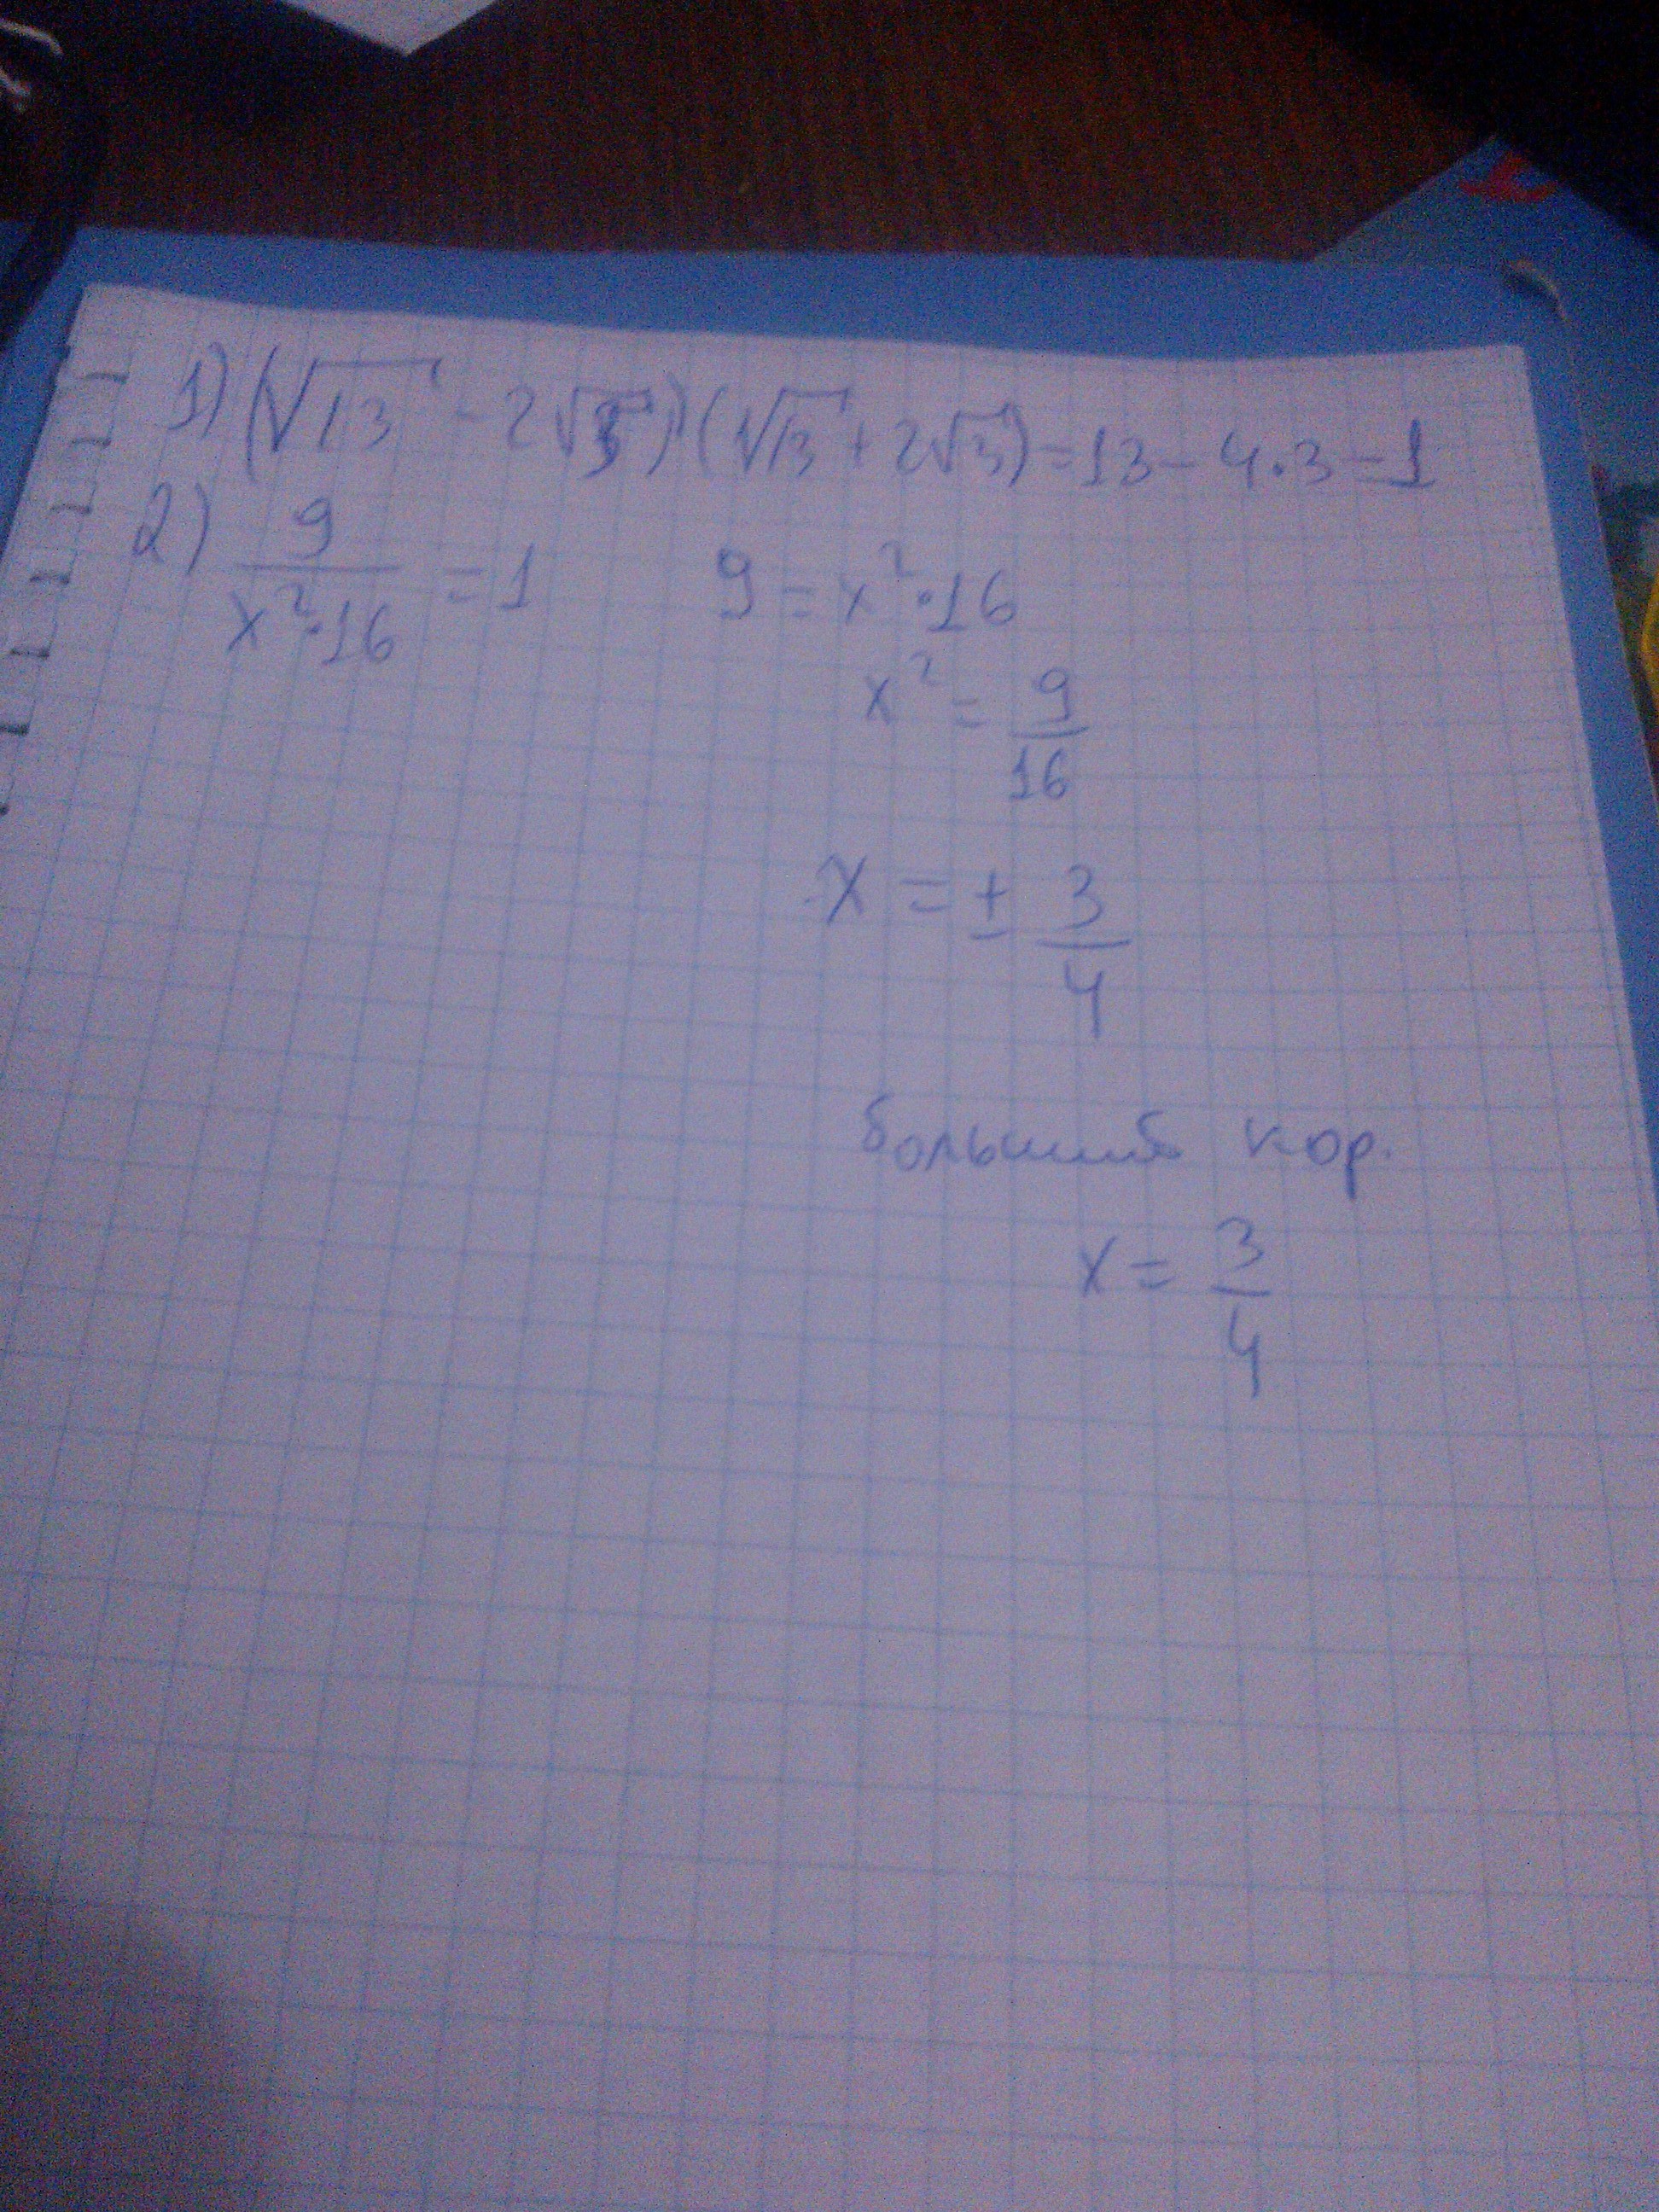 1) (√13 - 2√3) (√13 + 2√3) = 13 - 4·3 = 1
2) 9/(x²·16) = 1   9 = x²·16
x² = 9/16
x = ± 3/4
больший кор.
x = 3/4